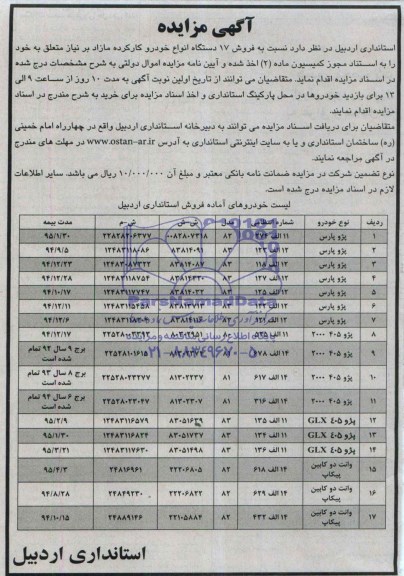 آگهی مزایده
استانداری اردبیل در نظر دارد نسبت به فروش ۱۷ دستگاه انواع خودرو کارکرده مازاد بر نیاز متعلق به خود
را به استناد مجوز کمیسیون ماده (۲) اخذ شده و آیین نامه مزایده اموال دولتی به شرح مشخصات درج شده
در اسناد مزایده اقدام نماید. متقاضیان می توانند از تاریخ اولین نوبت آگهی به مدت ۱۰ روز از ساعت ۹ الی
۱۳ برای بازدید خودروها در محل پارکینگ استانداری و اخذ اسناد مزایده برای خرید به شرح مندرج در اسناد
مزایده اقدام نمایند.
متقاضیان برای دریافت اسناد مزایده می توانند به دبیرخانه استانداری اردبیل واقع در چهارراه امام خمینی
(ره) ساختمان استانداری و یا به سایت اینترنتی استانداری به آدرس www.ostan-ar.ir در مهلت های مندرج
در آگهی مراجعه نمایند.
نوع تضمین شرکت در مزایده ضمانت نامه بانکی معتبر و مبلغ آن ۱۰/۰۰۰/۰۰۰ ریال می باشد. سایر اطلاعات
لازم در اسناد مزایده درج شده است.
لیست خودروهای آماده فروش استانداری اردبیل
ردیف نوع خودرو شماره انتظامی مدل ش-ش ش-م مدت بیمه
۱ پژو پارس ۸۳ ۲۲۵۲۸۲۰۶۳۷۷ ۹۵/۱/۳۰
۲ پژو پارس ۸۳ ۸۳۸۱۴۰۹۱ ۱۲۴۸۳۱۱۸۰۸۶ ۹۴/۹/۵
۳ پژو پارس ۱۲ الف ۱۱۵ ۸۳ ۸۳۸۱۴۰۸۷ ۹۴/۱۲/۲۳
۴ پژو پارس ۱۲ الف ۱۲۷ ۸۳ ۱۲۴۸۳۱۱۸۷۵۴ ۹۴/۱۲/۲۸
۵ پژو پارس ۱۲ الف ۱۲۵ ۸۳ ۱۲۴۸۳۱۱۷۷۴۷ ۹۴/۱۰/۱۷
۶ پژو پارس ۸۳ ۹۴/۱۲/۱۱
۷ پژو پارس ۸۳ ۹۴/۱۲/۶
۸ پژو ۴۰۵ ۲۰۰۰ ۹۴/۱۲/۱۷
۹ پژو ۴۰۵ ۲۰۰۰ ۱۴ الف ۶۷۸ ۲۲۵۲۸۱۰۱۶۱۵ برج ۹ سال ۹۲ تمام شده است
۱۰ پژو ۴۰۵ ۲۰۰۰ ۱۴ الف ۶۱۷ ۸۱ ۸۱۳۰۲۲۳۷ ۲۲۵۲۸۰۲۳۲۷۷ برج ۸ سال ۹۳ تمام شده است
۱۱ پژو ۴۰۵ ۲۰۰۰ ۱۴ الف ۳۱۶ ۸۱ ۸۱۳۰۲۳۰۷ ۲۲۵۲۸۰۲۳۰۴۷ برج ۶ سال ۹۴ تمام شده است
۱۲ پژو ۴۰۵ GLX ۱۱ الف ۱۳۵ ۸۳ ۱۲۴۸۳۱۱۶۵۷۹ ۹۵/۲/۹
۱۳ پژو ۴۰۵ GLX ۱۱ الف ۱۳۴ ۸۳ ۸۳۰۵۱۷۳۷ ۱۲۴۸۳۱۱۶۸۲۴ ۹۵/۱/۳۰
۱۴ پژو ۴۰۵ GLX ۱۱ الف ۱۳۶ ۸۳ ۸۳۰۵۱۴۹۸ ۱۲۴۸۳۱۱۷۶۳۰ ۹۵/۳/۲۱
۱۵ وانت دو کابین پیکاپ ۱۴ الف ۶۱۸ ۸۲ ۲۲۲۰۶۸۰۵ ۲۴۸۱۶۹۶۱ ۹۵/۴/۳
۱۶ وانت دو کابین پیکاپ ۱۴ الف ۶۲۹ ۸۲ ۲۲۲۰۶۸۲۲ ۲۴۸۴۹۲۳۰ ۹۴/۸/۲۸
۱۷ وانت دو کابین پیکاپ ۱۴ الف ۴۳۲ ۸۲ ۲۲۱۰۵۸۸۴ ۲۴۸۸۹۱۴۶ ۹۴/۱۰/۱۵
استانداری اردبیل
ParsNamadData
۰۲۱-۸۸۳۴۹۶۷۰-۵